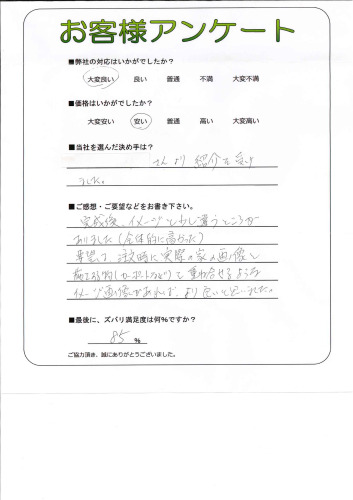 お客様アンケート
■弊社の対応はいかがでしたか？
大変良い 良い 普通 不満 大変不満
■価格はいかがでしたか？
大変安い 安い 普通 高い 大変高い
■当社を選んだ決め手は？
さんより紹介を受け
ました。
■ご感想・ご要望などをお書き下さい。
完成後、イメージと少し違うところが
ありました（全体的に高かった）
要望は、注文時に実際の家の画像と
施工お物（カーポートなど）を重ね合せるような
イメージ画像があれば、より良いと思いました。
■最後に、ズバリ満足度は何％ですか？
85 %
ご協力頂き、誠にありがとうございました。